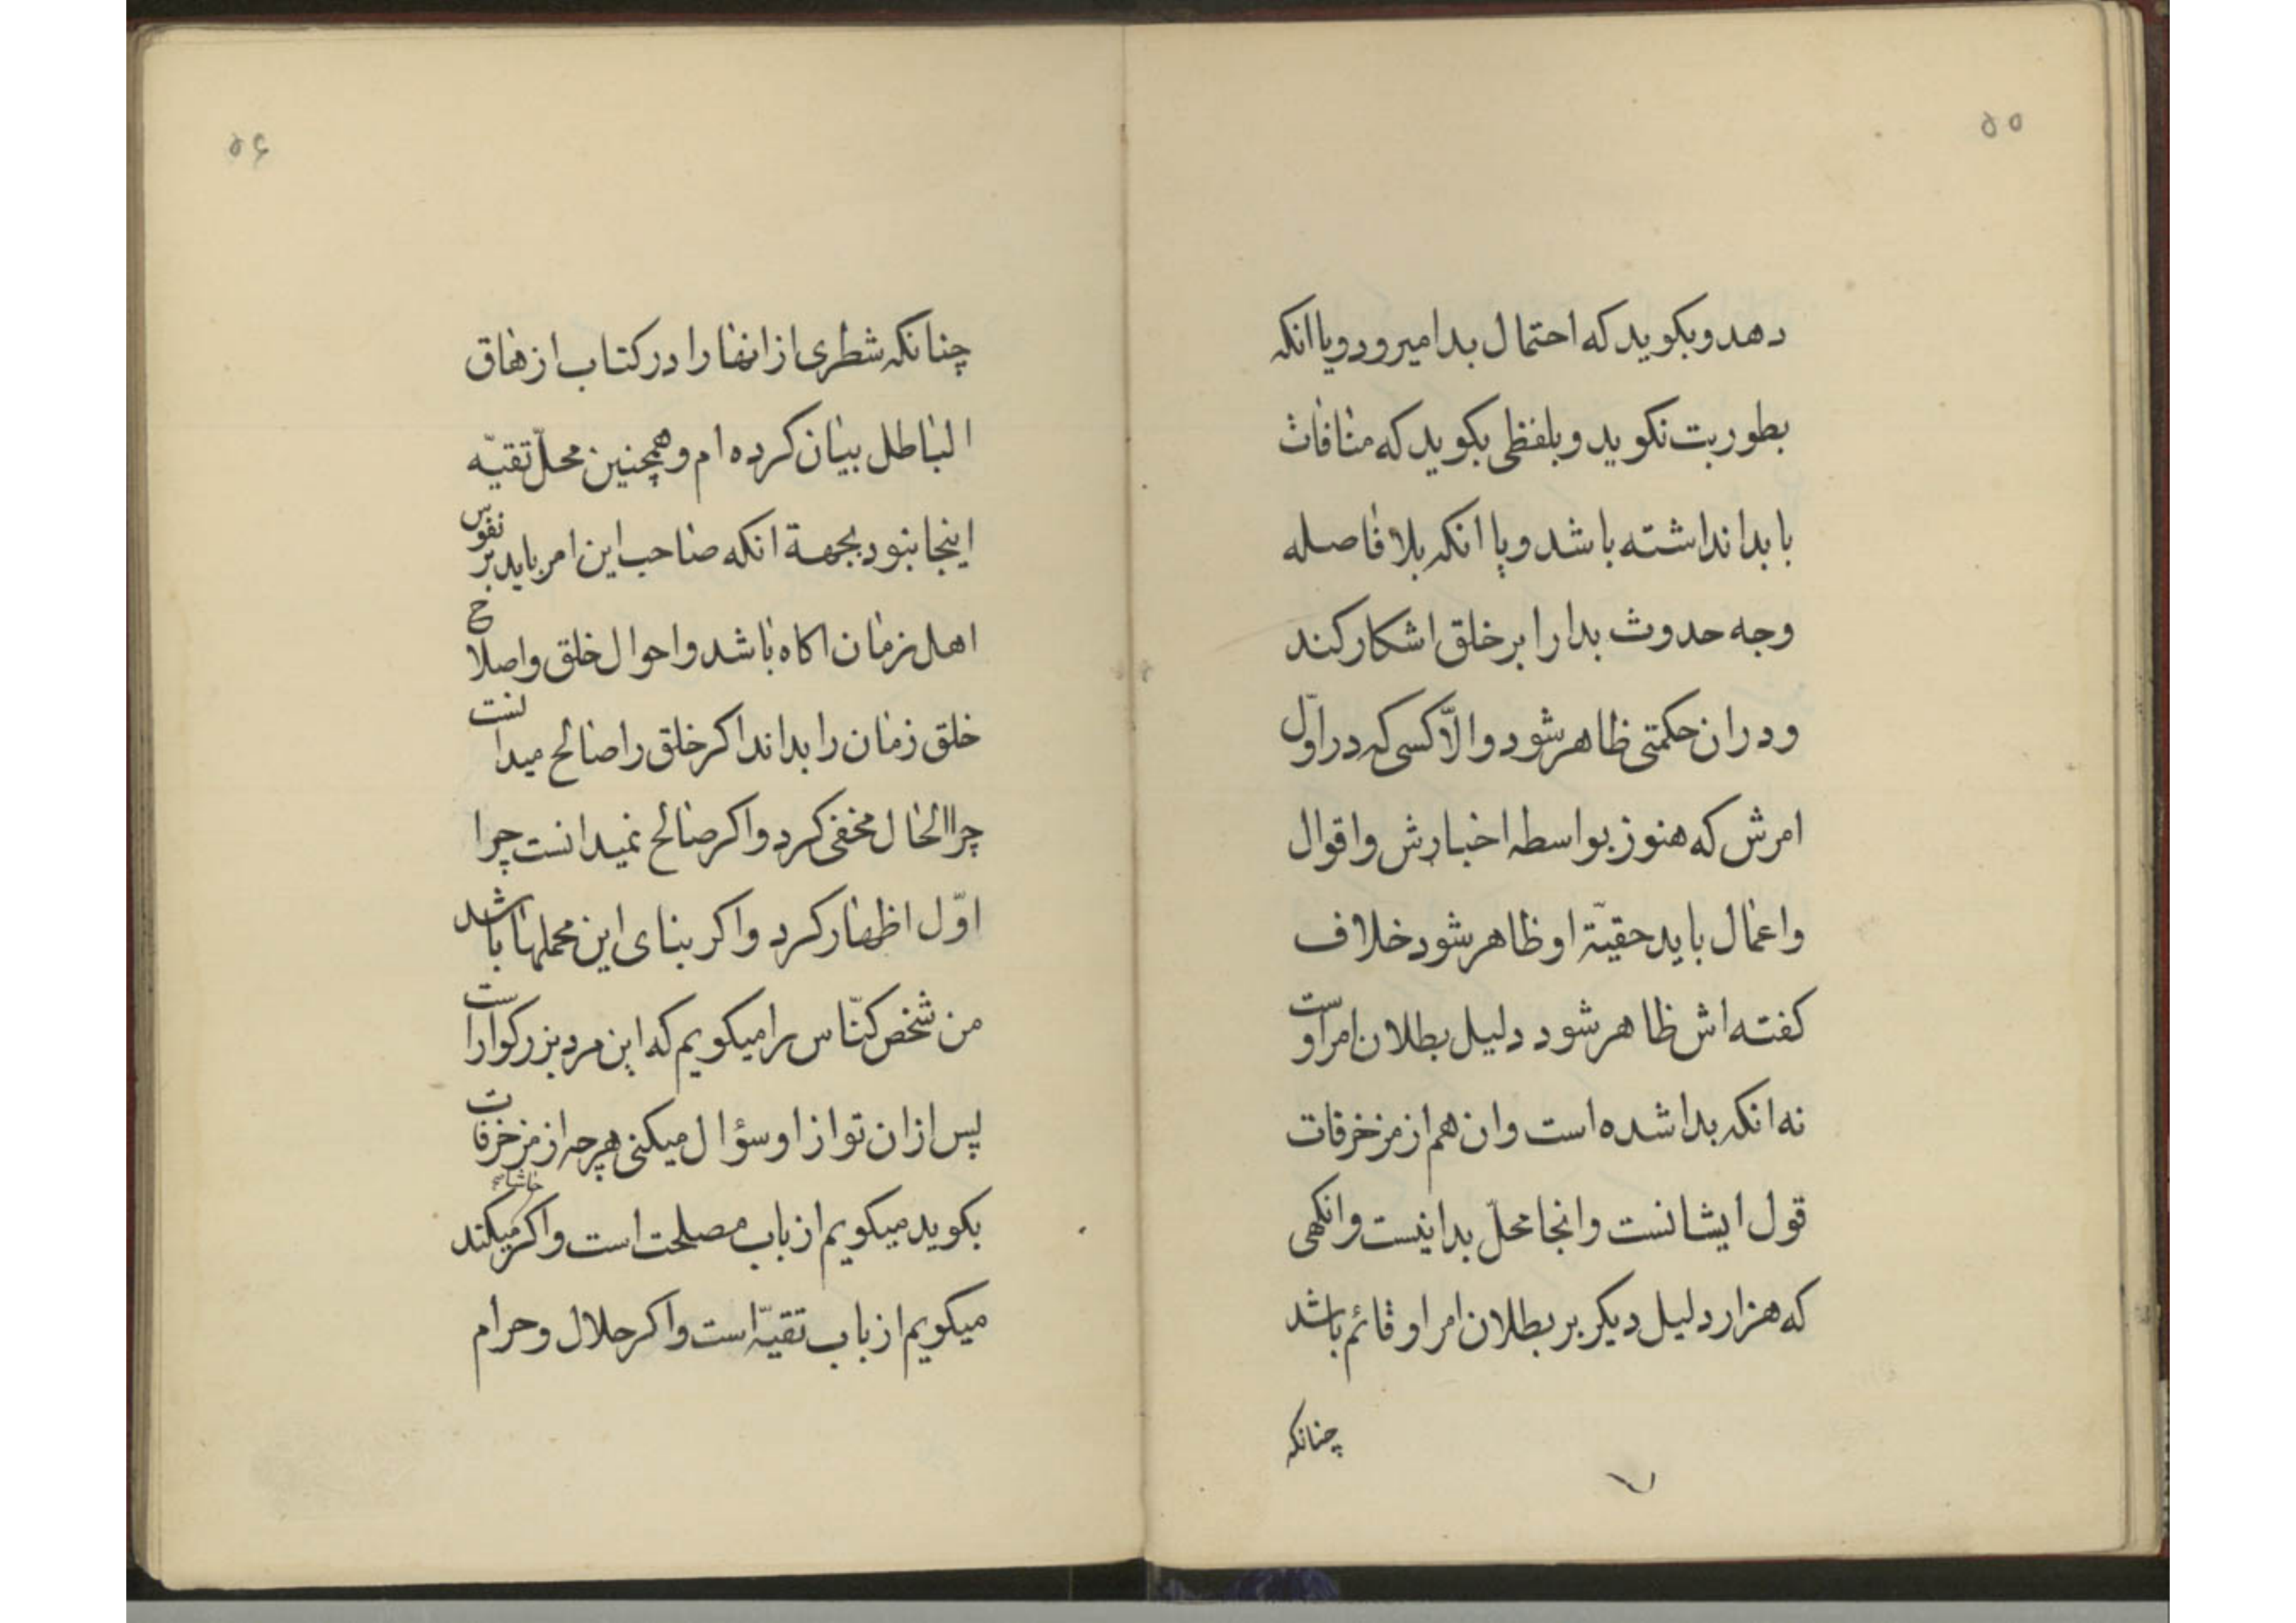 ۵۵
دهد و بکوید که احتمال بدا میرود و یا انکه
بطور بت نکوید و بلفظی بکوید که منافات
با بدا نداشته باشد و یا انکه بلا فاصله
وجه حدوث بدا را بر خلق اشکار کند
و در ان حکمتی ظاهر شود و الّا کسی که در اوّل
امرش که هنوز بواسطه اخبارش و اقوال
و اعمال باید حقیّة او ظاهر شود خلاف
کفته اش ظاهر شود دلیل بطلان امر اوست
نه انکه بدا شده است و ان هم از مزخرفات
قول ایشانست و انجا محلّ بدا نیست وانکهی
که هزار دلیل دیکر بر بطلان امر او قائم باشد
چنانکه
۵۶
چنانکه شطری از انها را در کتاب ازهاق
الباطل بیان کرده ام و همچنین محلّ تقیّه
اینجا نبود بجهة انکه صاحب این امر باید بر نفوس
اهل زمان اکاه باشد و احوال خلق و اصلاح
خلق زمان را بداند اکر خلق را صالح میدانست
چرا الحال مخفی کرد و اکر صالح نمیدانست چرا
اوّل اظهار کرد و اکر بنای این محملها باشد
من شخص کنّاس را میکویم که این مرد بزرکوار است
پس از ان تو از او سؤال میکنی هرچه از مزخرفات
بکوید میکویم از باب مصلحت است و اکر حاشا میکند
میکویم از باب تقیّه است و اکر حلال و حرام